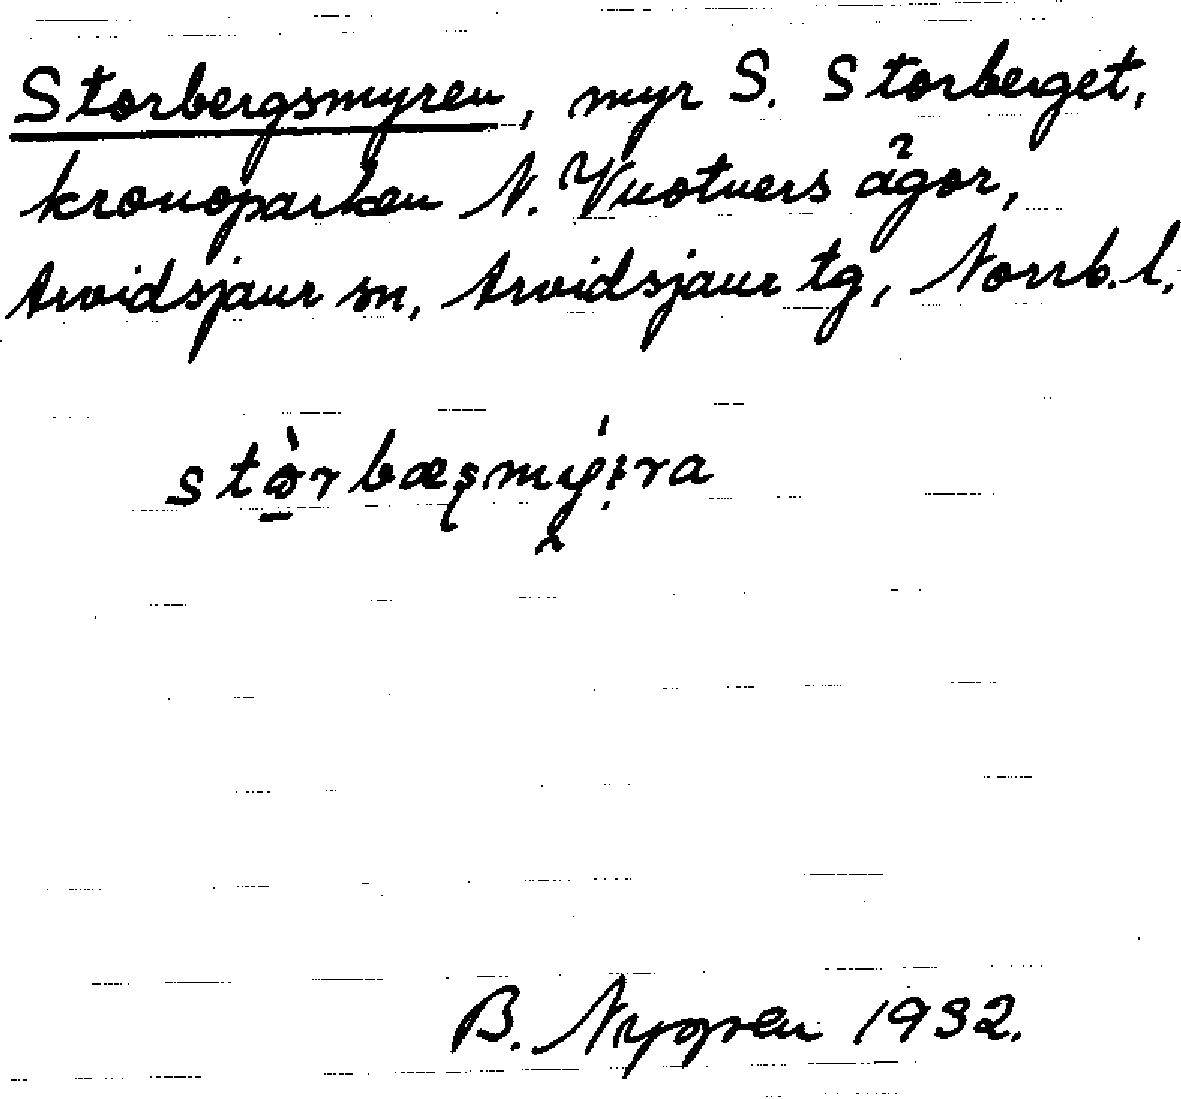 Storbergsmyren, myr S. Storberget,
kronoparken N. Vuotners ägor,
Arvidsjaur sn, Arvidsjaur tg, Norrb. l.
B. Nygren 1932.